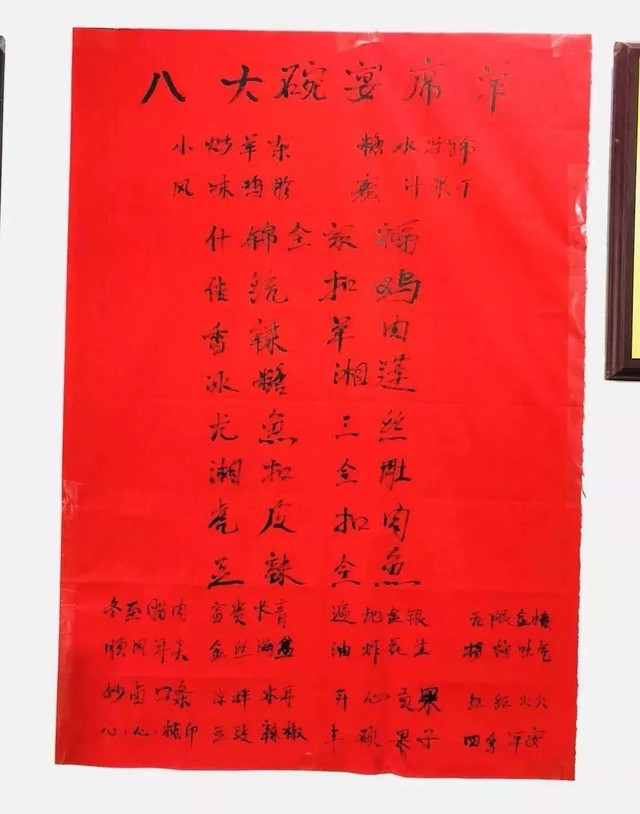 八大碗宴席
小炒羊 糖水
风味鸡胗 蜜汁
什锦全家福
传统扣鸡
香辣羊肉
冰糖湘莲
尤鱼三丝
湘扣全肚
虎皮扣肉
豆豉全鱼
冬至腊肉 富贵长青 遍地金银 无限金
顺风耳尖 金丝满 油炸花生 扬眉吐气
妙卤口条 凉拌木耳 开心贡果 红红火火
心心相印 豆豉辣椒 丰硕果子 四季平安